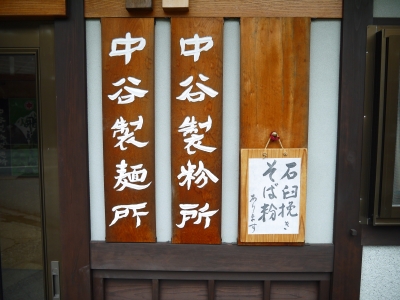 中谷製麺所
中谷製粉所
石臼挽き
そば粉
あります